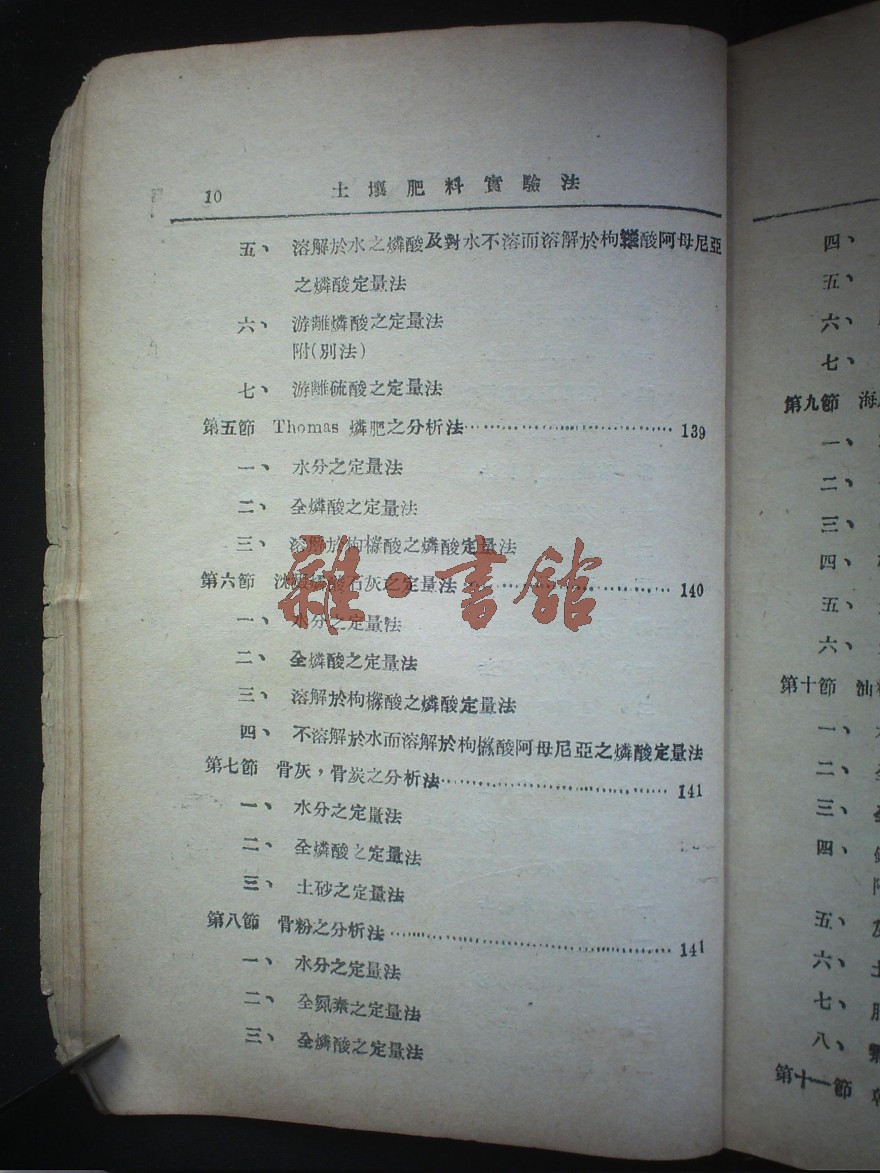 10 土壤肥料實驗法
五、 溶解於水之燐酸及對水不溶而溶解於枸櫞酸阿母尼亞
之燐酸定量法
六、 游離燐酸之定量法
附(別法)
七、 游離硫酸之定量法
第五節 Thomas 燐肥之分析法 139
一、 水分之定量法
二、 全燐酸之定量法
三、 溶解於枸櫞酸之燐酸定量法
第六節 沈澱燐酸石灰之定量法 140
一、 水分之定量法
二、 全燐酸之定量法
三、 溶解於枸櫞酸之燐酸定量法
四、 不溶解於水而溶解於枸櫞酸阿母尼亞之燐酸定量法
第七節 骨灰，骨炭之分析法 141
一、 水分之定量法
二、 全燐酸之定量法
三、 土砂之定量法
第八節 骨粉之分析法 141
一、 水分之定量法
二、 全氮素之定量法
三、 全燐酸之定量法
雜·書館
四、
五、
六、
七、
第九節 海
一、
二、
三、
四、
五、
六、
第十節 油
一、
二、
三、
四、
五、
六、
七、
八、
第十一節